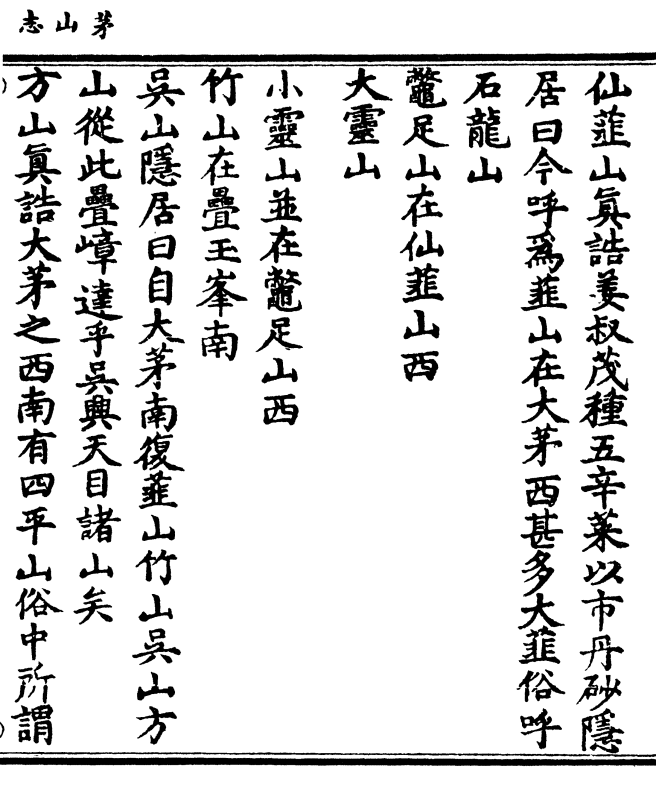 茅山志
仙韮山眞誥姜叔茂種五辛菜以市丹砂隱
居曰今呼爲韮山在大茅西甚多大韮俗呼
石龍山
鼈足山在仙韮山西
大靈山
小靈山並在鼈足山西
竹山在疊玉峯南
吳山隱居曰自大茅南復韮山竹山吳山方
山從此疊嶂達乎吳興天目諸山矣
方山眞誥大茅之西南有四平山俗中所謂